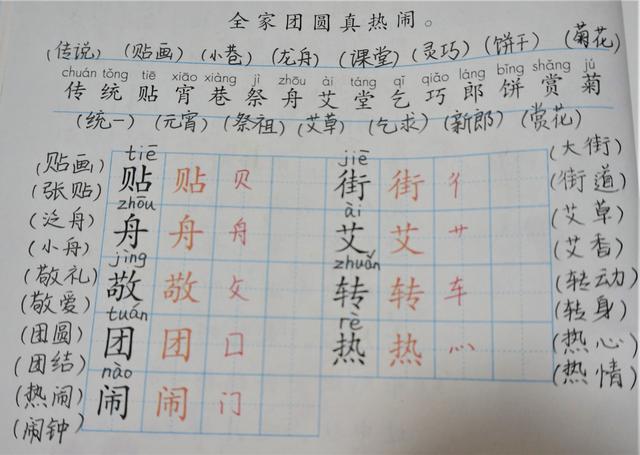 全家团圆真热闹。
(传说) (贴画) (小巷) (龙舟) (课堂) (灵巧) (饼干) (菊花)
chuán tǒng tiē xiāo xiàng jì zhōu ài táng qǐ qiǎo láng bǐng shǎng jú
传 统 贴 宵 巷 祭 舟 艾 堂 乞 巧 郎 饼 赏 菊
(统一) (元宵) (祭祖) (艾草) (乞求) (新郎) (赏花)
tiē jiē
(贴画) 贴 贴 贝 街 街 彳 (大街)
(张贴) (街道)
zhōu ài
(泛舟) 舟 舟 舟 艾 艾 艹 (艾草)
(小舟) (艾香)
jìng zhuǎn
(敬礼) 敬 敬 攵 转 转 车 (转动)
(敬爱) (转身)
tuán rè
(团圆) 团 团 囗 热 热 灬 (热心)
(团结) (热情)
nào
(热闹) 闹 闹 门
(闹钟)